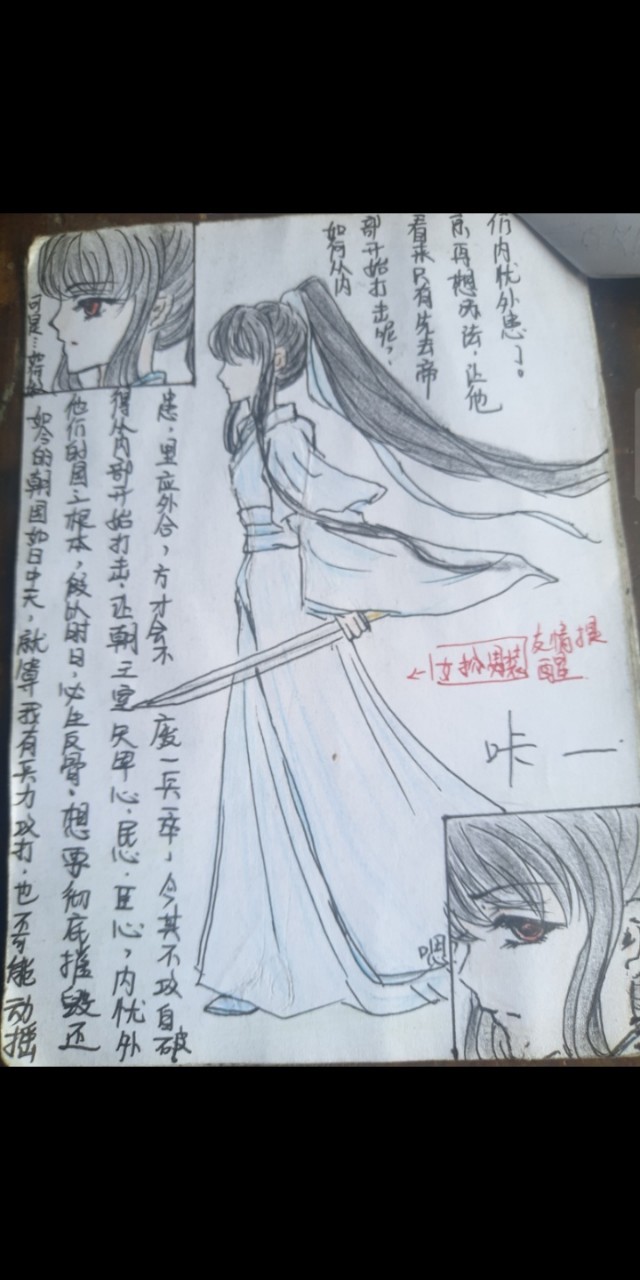 如今的朝国如日中天，就算我有兵力攻打，也不可能动摇
他们的国之根本，段以时日，必生反骨。想要彻底摧毁还
得从内部开始打击，让朝王室失军心，民心，臣心，内忧外
患，里应外合，方才会不废一兵一卒，令其不攻自破
可是…
如何从内
部开始打击呢？
看来只有先去帝
京再想办法，让他
们内忧外患了。
←女扮男装
友情提
醒
咔一
嗯